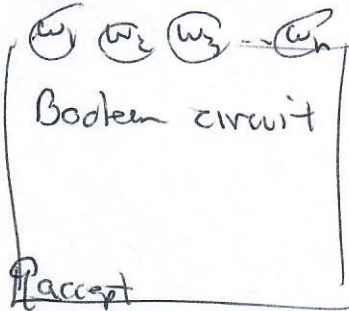 w₁ w₂ w₃ ... wₙ
Boolean circuit
accept